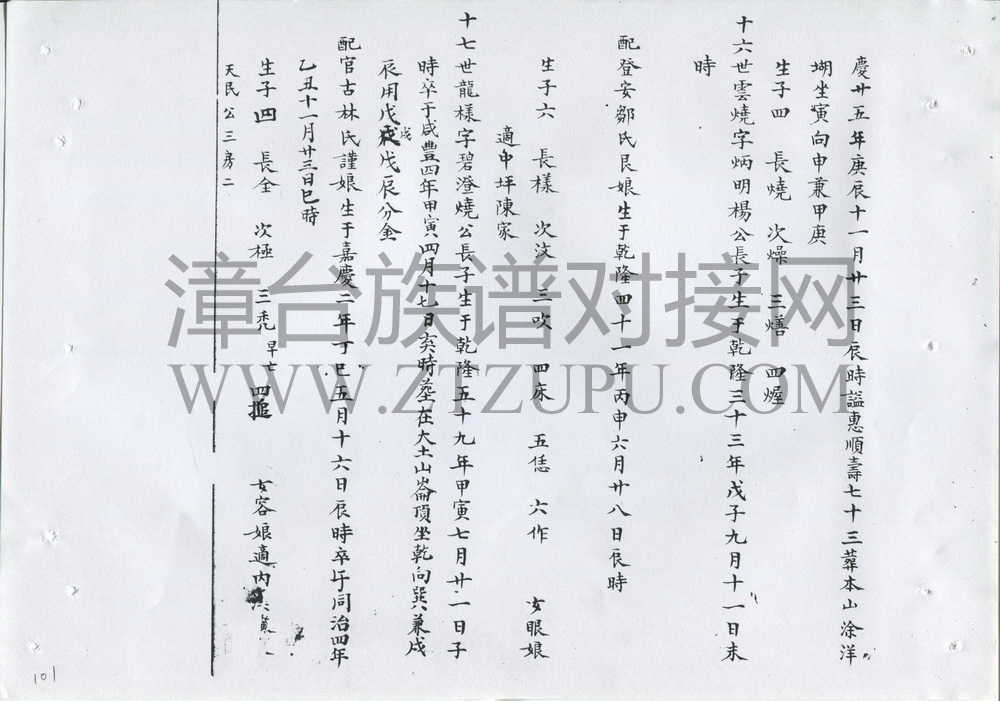 慶廿五年庚辰十一月廿三日辰時謚惠順壽七十三葬本山涂洋
坳坐寅向申兼甲庚
生子四 長燒 次燥 三燔 四煋
十六世雲燒字炳明楊公長子生于乾隆三十三年戊子九月十一日未
時
配登安鄒氏艮娘生于乾隆四十一年丙申六月廿八日辰時
生子六 長樣 次汶 三吹 四床 五恁 六作 女眼娘
適中坪陳家
十七世龍樣字碧澄燒公長子生于乾隆五十九年甲寅七月廿一日子
時卒于咸豐四年甲寅四月十七日亥時塟在大土山崙頂坐乾向巽兼戌
辰用戊戌戊辰分金
配官古林氏謹娘生于嘉慶二年丁巳五月十六日辰時卒于同治四年
乙丑十一月廿三日巳時
生子四 長全 次極 三禿 早亡 四摳 女容娘適内
天民公三房二
101
漳台族谱对接网
WWW.ZTZUPU.COM